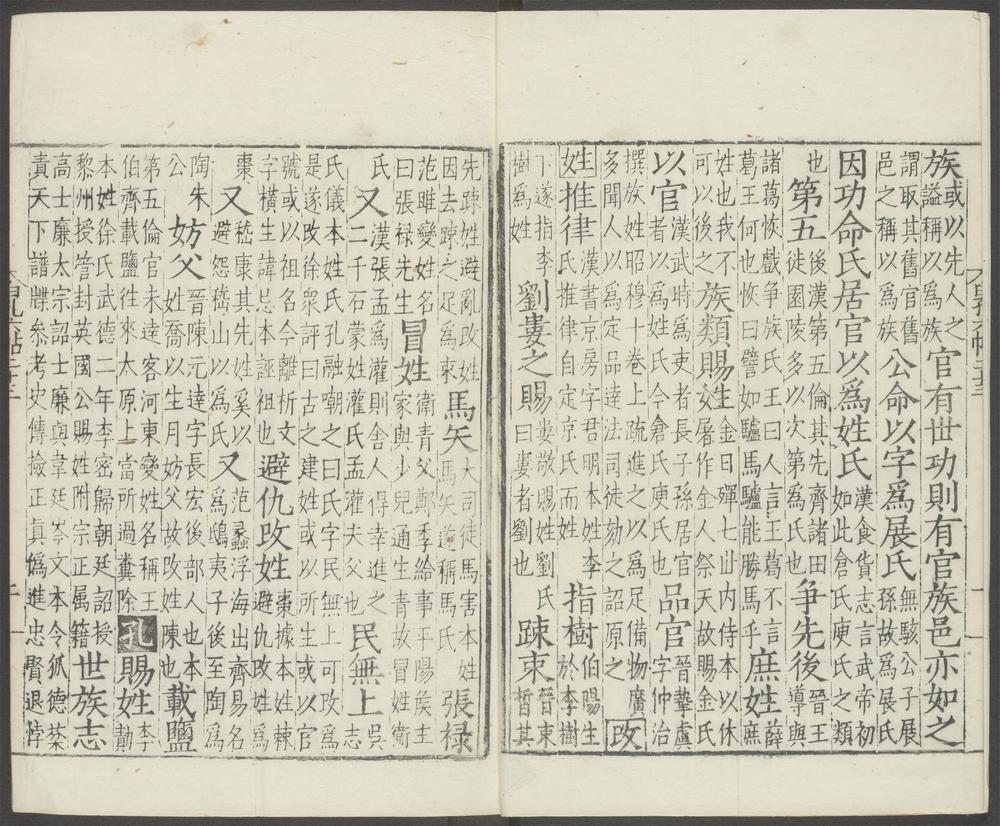 族或以先人之謚稱以爲族官有世功則有官族邑亦如之
謂取其舊官舊邑之稱以爲族公命以字爲展氏無駭公子展孫故爲展氏
因功命氏居官以爲姓氏漢食貨志言武帝初如此倉氏庾氏之類
也第五後漢第五倫其先齊諸田徙園陵多以次第爲氏也争先後晉王導與
諸葛恢戲争族氏王曰人言王葛不言葛王何也恢曰譬如驢馬驢能勝馬乎庶姓薛庶
姓也我不可以後之族類賜姓金日磾七世内侍本以休屠作金人祭天故賜金氏
以官漢武時爲吏者長子孫居官者爲姓氏令倉氏庾氏也品官晉摯虞字仲治
撰族姓昭穆十卷上疏進之以爲足備物廣多聞人以爲定品違法司徒劾之詔原之改
姓推律漢書京房字君明本姓李氏推律自定京氏而姓指樹伯陽生於李樹
下遂指李樹爲姓劉婁之賜婁敬賜姓劉氏曰婁者劉也踈束晉束晢其
先踈姓避亂改姓因去踈之足爲束馬矢大司徒馬宮本姓馬矢遂稱馬氏張禄
范雎變姓名曰張禄先生冒姓衛青父鄭季給事平陽侯主家與少兒通生青故冒姓衛
氏又漢張孟爲灌則舍人得幸進之二千石蒙姓灌氏孟灌夫父也民無上吳志
氏儀本姓氏孔融嘲之曰氏字民無上可改爲是遂改徐衆評曰古之建姓或以所生或以官
號或以祖名今離析文字橫生諱忌本誣祖也避仇改姓棗據本姓棘避仇改姓爲
棗又嵇康其先姓奚以避怨嵇山以爲氏又范蠡浮海出齊易名爲鴟夷子後至陶爲
陶朱公妨父晉陳元達字長宏後部人也本姓喬以生月妨父故改姓陳也載鹽
第五倫官未達客河東變姓名稱王伯齊載鹽徃來太原上當所過糞除孔賜姓李勣
本姓徐氏武德二年李密歸朝廷詔授黎州授管封英國公賜姓附宗正属籍世族志
高士廉太宗詔士廉與韋廷岑文本令狐德棻責天下譜牒參考史傳撿正真僞進忠賢退悖